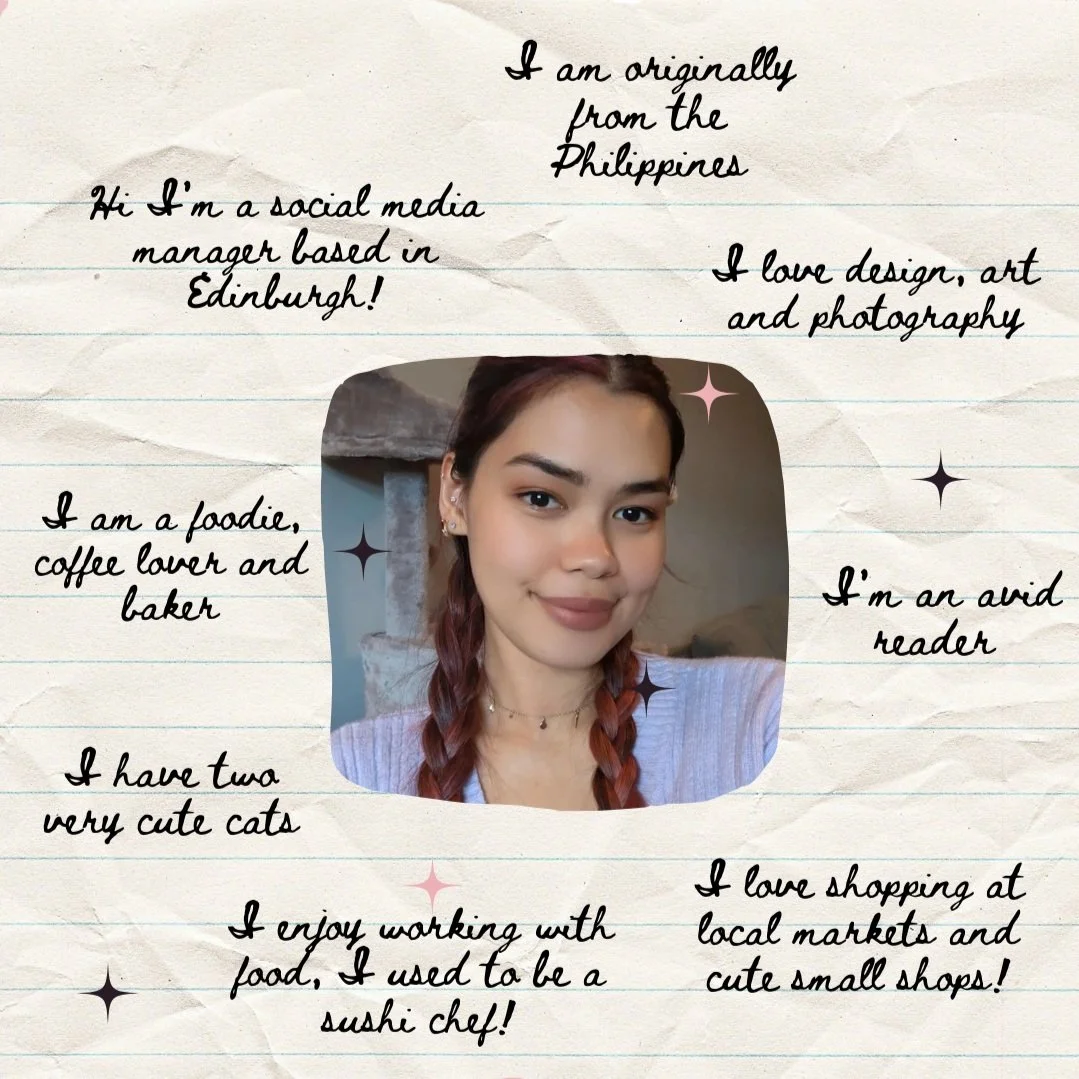 I am originally
from the
Philippines
Hi I'm a social media
manager based in
Edinburgh!
I love design, art
and photography
I am a foodie,
coffee lover and
baker
I'm an avid
reader
I have two
very cute cats
I love shopping at
local markets and
cute small shops!
I enjoy working with
food, I used to be a
sushi chef!